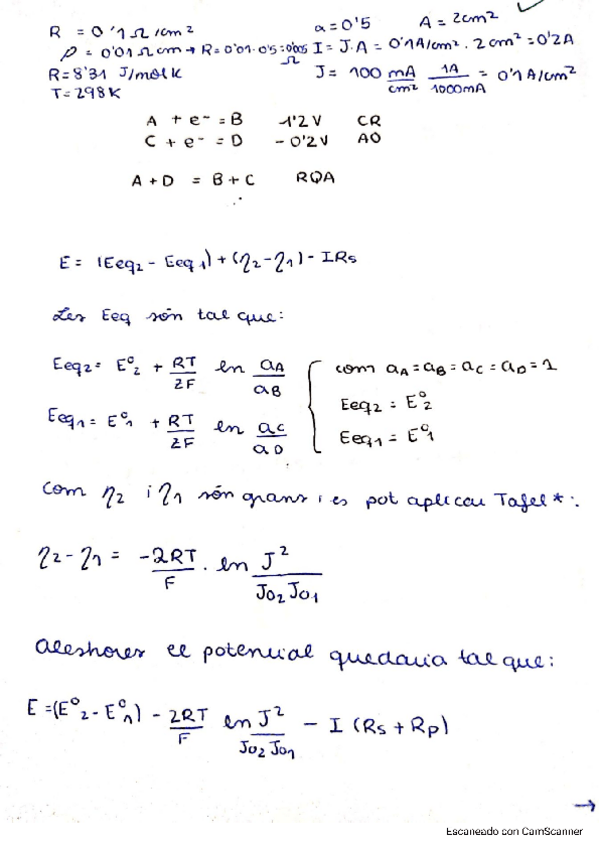 R = 0'1 Ω/cm² a=0'5 A = 2cm²
ρ = 0'01 Ωcm → R=0'01·0'5=0'005 Ω I = J·A = 0'1A/cm² · 2 cm² = 0'2A
R=8'31 J/molK J = 100 mA/cm² 1A/1000mA = 0'1A/cm²
T=298K
A + e⁻ = B 1'2V CR
C + e⁻ = D -0'2V AO
A+D = B+C RQA
E = (Eeq₂ - Eeq₁) + (η₂-η₁) - IRs
Les Eeq són tal que:
Eeq₂= E°₂ + RT/2F ln aA/aB com aA=aB=aC=aD=1
Eeq₂ = E°₂
Eeq₁= E°₁ + RT/2F ln aC/aD Eeq₁ = E°₁
Com η₂ i η₁ són grans i es pot aplicar Tafel*:
η₂-η₁ = -2RT/F · ln J²/Jo₂Jo₁
Aleshores el potencial quedaria tal que:
E=(E°₂-E°₁) - 2RT/F ln J²/Jo₂Jo₁ - I (Rs+Rp)
→
Escaneado con CamScanner